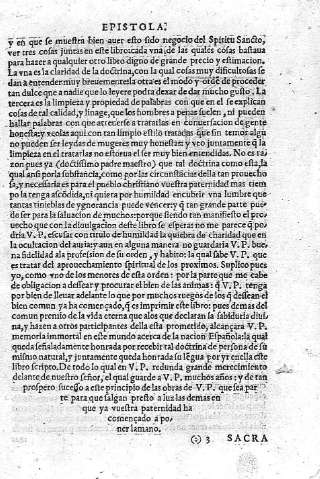 EPISTOLA.
y en que se muestra bien auer esto sido negocio del Spiritu Sancto,
ver tres cosas juntas en este libro: cada vna de las quales cosas bastaua
para hazer a qualquier otro libro digno de grande precio y estimacion.
La vna es la claridad de la doctrina, con la qual cosas muy dificultosas se
dan a entender muy breuemente: la otra es el modo y ordē de proceder
tan dulce que a nadie que lo leyere podra dexar de dar mucho gusto. La
tercera es la limpieza y propiedad de palabras con que en el se explican
cosas de tal calidad, y linage, que los hombres a penas suelen, ni pueden
hallar palabras con que atreuerse a tratarlas en conuersacion de gente
honesta: y veolas aqui con tan limpio estilo tratadas que sin temor algu
no pueden ser leydas de mugeres muy honestas: y veo juntamente q̃ la
limpieza en tratarlas no estorua el ser muy bien entendidas. No es ra-
zon pues ya (doctissimo padre maestro) que tal doctrina como esta, la
qual ansi por la substancia, como por las circunstācias della tan prouecho
sa, y necessaria es para el pueblo christiano vuestra paternidad mas tiem
po la tenga ascōdida, ni quiera por humildad encubrir vna lumbre que
tantas tinieblas de ygnorancia puede vencer: y q̃ tan grande parte pue-
de ser para la saluacion de muchos: porque siendo tan manifiesto el pro-
uecho que con la diuulgacion deste libro se espera: no me parece q̃ po-
dria V. P. escusar con titulo de humildad la quiebra de charidad que en
la ocultacion del auria: y aun en alguna manera no guardaria V. P. bue-
na fidelidad a la profession de su orden, y habito: la qual sabe V. P. que
es tratar del aprouechamiento spiritual de los proximos. Suplico pues
yo, como vno de los menores de essa orden: por la parte que me cabe
de obligacion a dessear y procurar el bien de las animas: q̃ V. P. tenga
por bien de lleuar adelante lo que por muchos ruegos de los q̃ dessean el
bien comun ya ha començado, q̃ es imprimir este libro: pues demas del
comun premio de la vida eterna que a los que declaran la sabiduria diui-
na, y hazen a otros participantes della esta prometido, alcançara V. P.
memoria immortal en este mundo acerca de la nacion Española: la qual
queda señaladamente honrada por recebir tal doctrina de persona de su
mismo natural, y juntamente queda honrada su lēgua por yr en ella este
libro scripto. De todo lo qual en V. P. redunda grande merecimiento
delante de nuestro señor, el qual guarde a V. P. muchos años: y de tan
prospero sucesso a este principio de las obras de V. P. que sea par
te para que salgan presto a luz las demas en
que ya vuestra paternidad ha
començado a po-
ner la mano.
(2) 3 SACRA